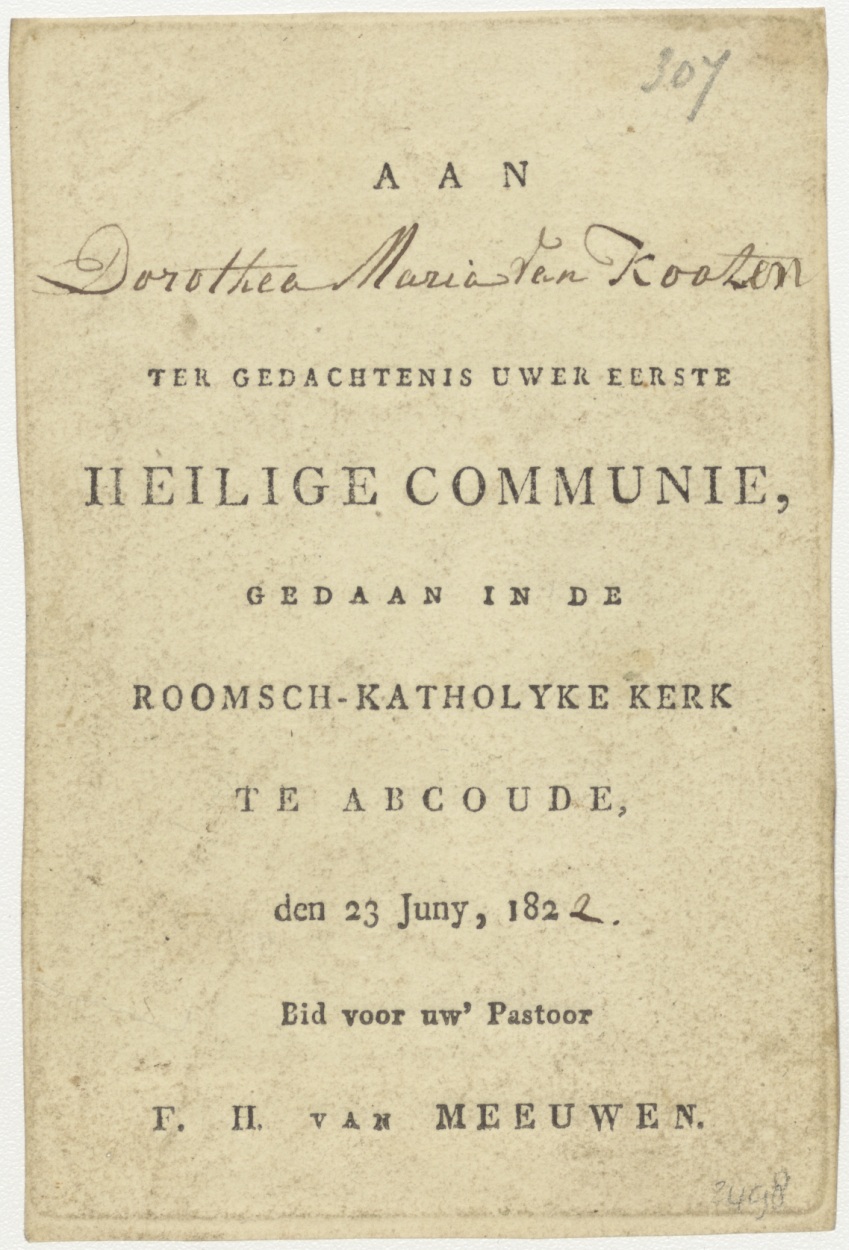 307
AAN
Dorothea Maria Van Kooten
TER GEDACHTENIS UWER EERSTE
HEILIGE COMMUNIE,
GEDAAN IN DE
ROOMSCH-KATHOLYKE KERK
TE ABCOUDE,
den 23 Juny, 1822.
Bid voor uw' Pastoor
F. H. VAN MEEUWEN.